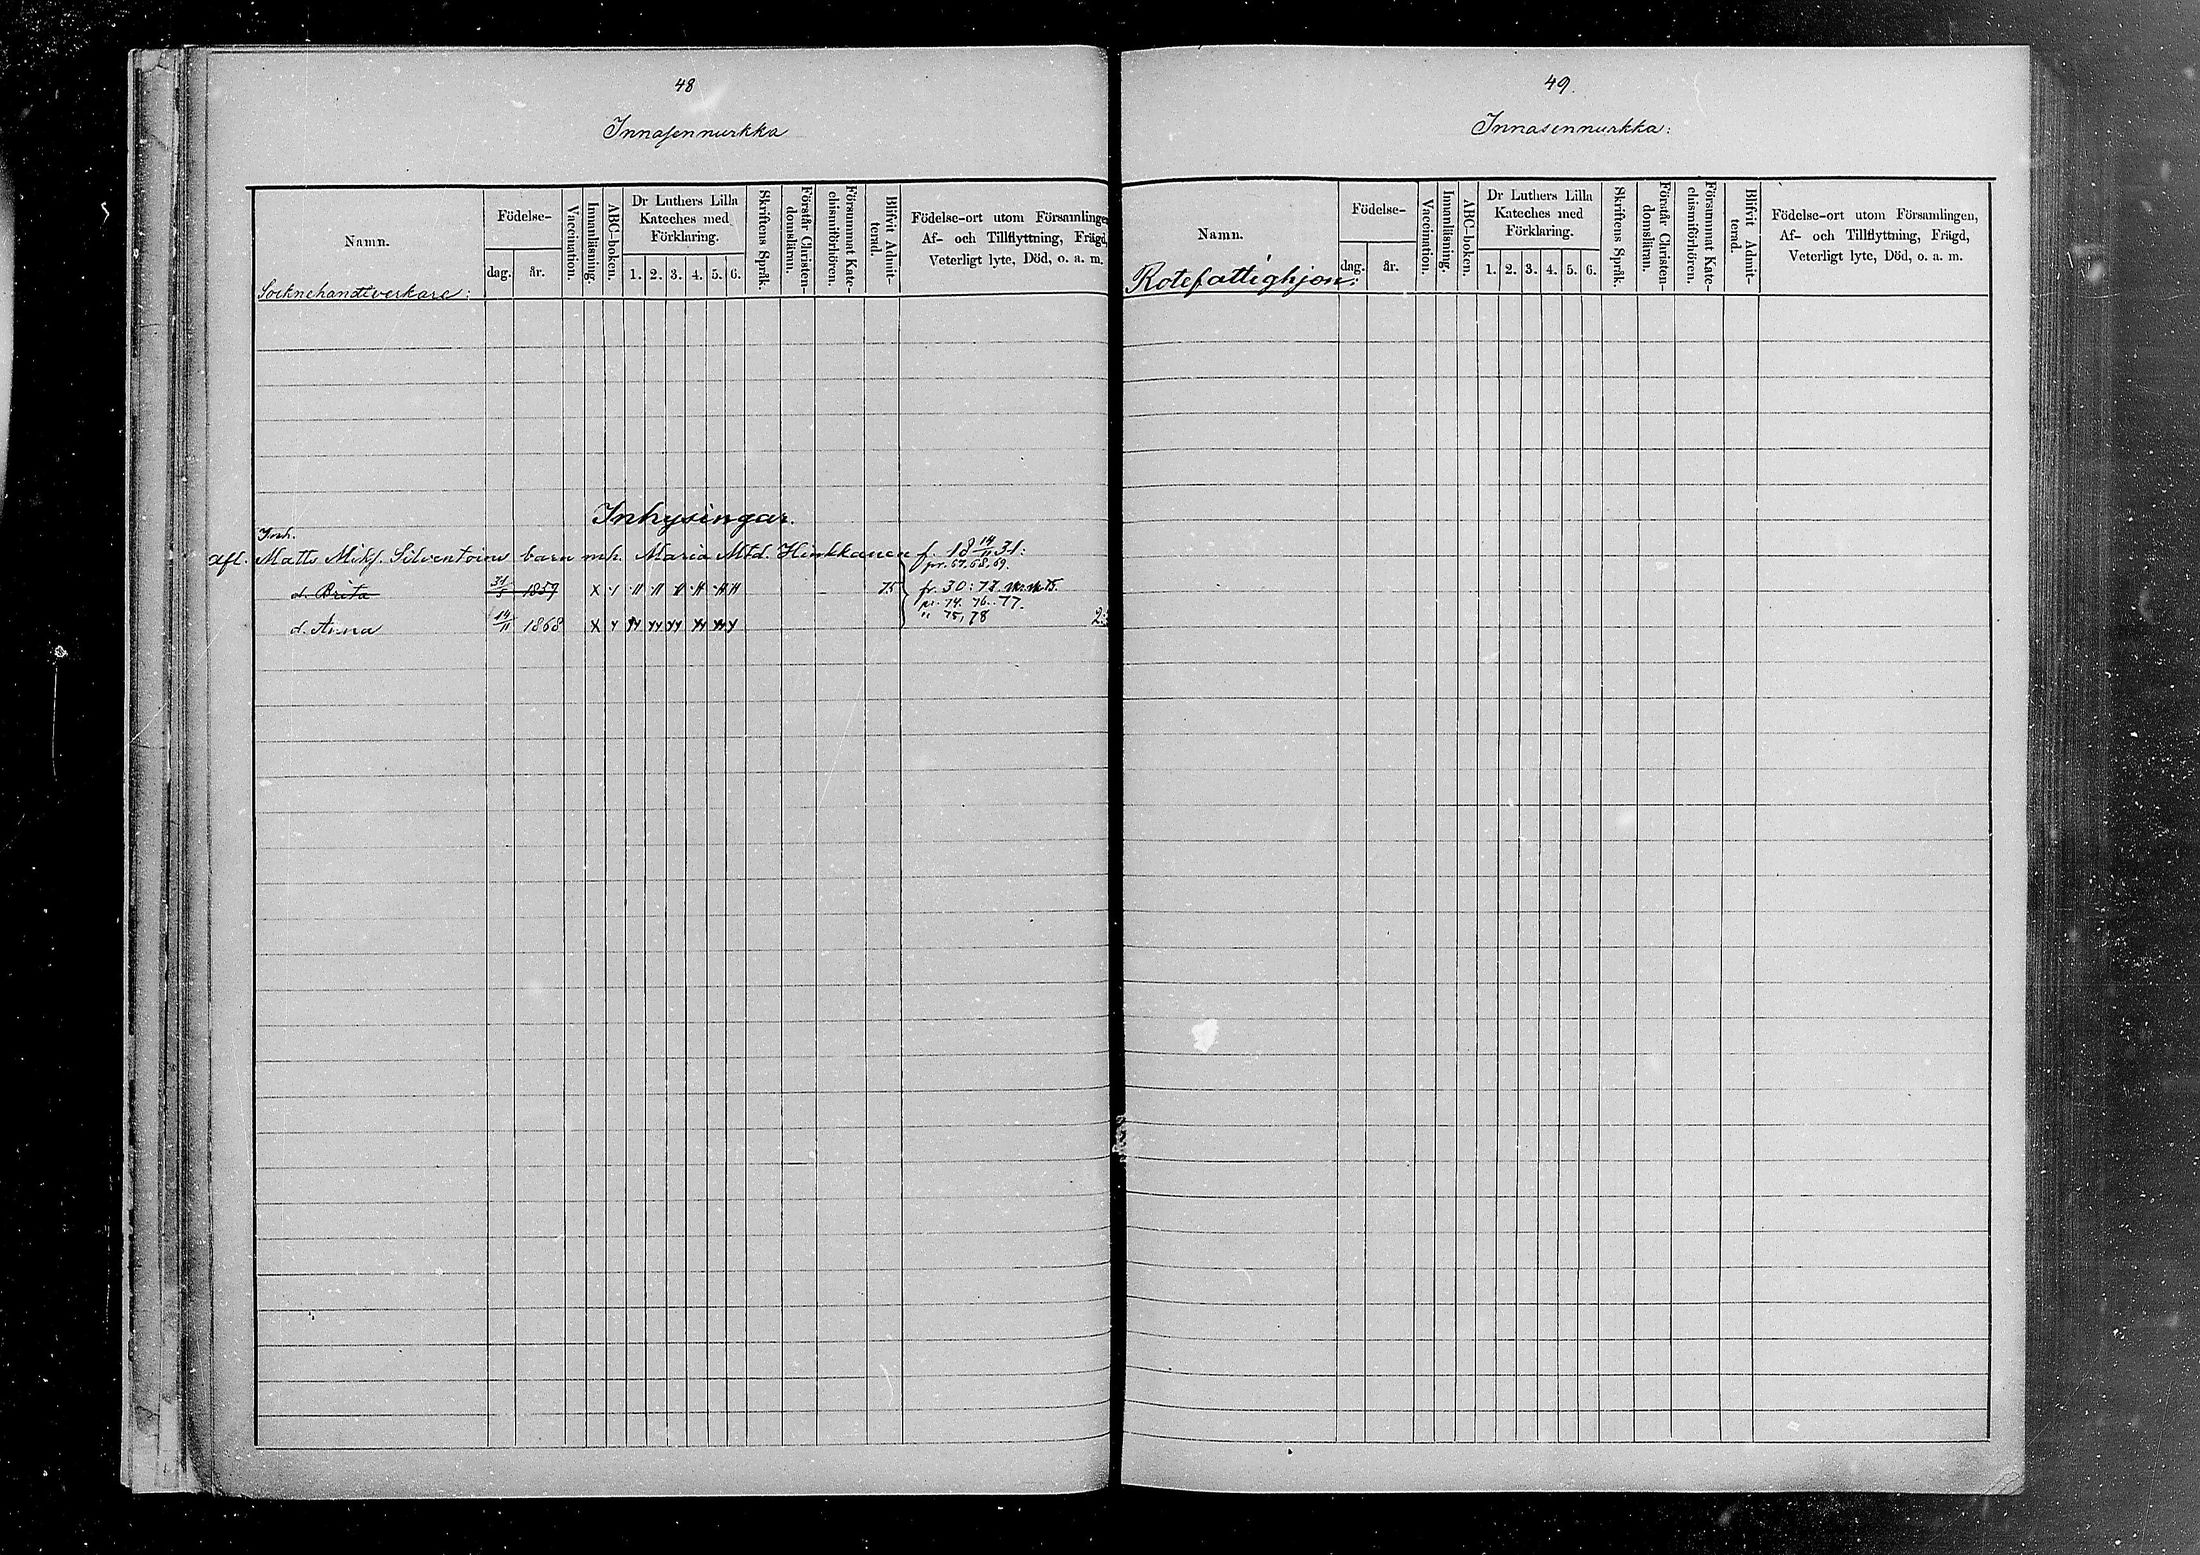 48
Innasennurkka
Namn.
Födelse-
dag.
år.
Vaccination.
Innanläsning.
ABC-boken.
Dr Luthers Lilla
Kateches med
Förklaring.
1. 2. 3. 4. 5. 6.
Skriftens Språk.
Förstår Christen-
domsläran.
Försummat Kate-
chismiförhören.
Blifvit Admit-
terad.
Födelse-ort utom Församlingen,
Af- och Tillflyttning, Frägd,
Veterligt lyte, Död, o. a. m.
Socknehandtverkare:
Inhysingar.
Inh.
Afl. Matts Mikf. Silventoins barn mh. Maria Mtd. Hinkkanen f. 18 14/11 31:
pr. 67, 68, 69.
d. Brita 31/5 1857 75 fr. 30: 77.
pr. 74. 76. 77.
d. Anna 14/11 1868 " 75, 78
49.
Innasennurkka:
Namn.
Födelse-
dag.
år.
Vaccination.
Innanläsning.
ABC-boken.
Dr Luthers Lilla
Kateches med
Förklaring.
1. 2. 3. 4. 5. 6.
Skriftens Språk.
Förstår Christen-
domsläran.
Försummat Kate-
chismiförhören.
Blifvit Admit-
terad.
Födelse-ort utom Församlingen,
Af- och Tillflyttning, Frägd,
Veterligt lyte, Död, o. a. m.
Rotefattighjon: